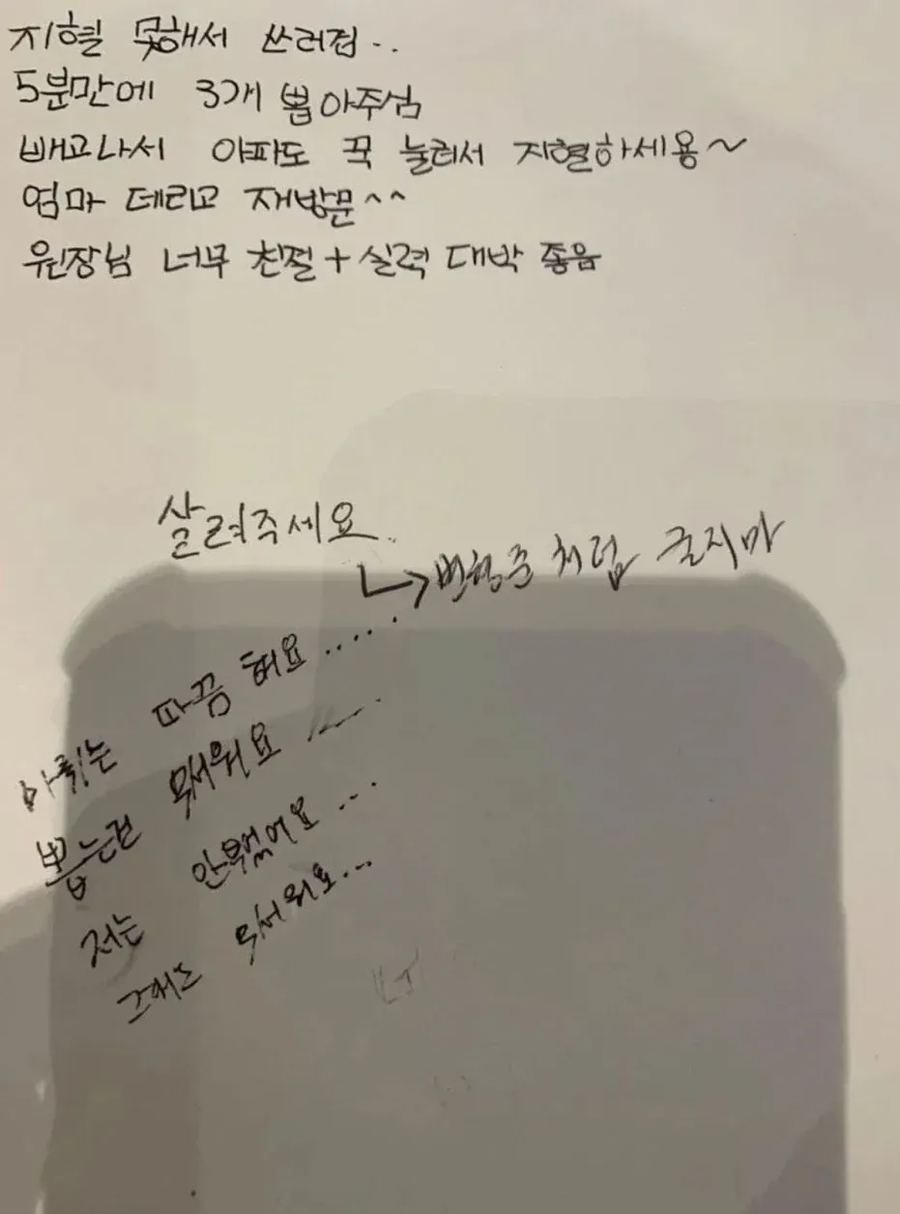 지혈 못해서 쓰러짐..
5분만에 3개 뽑아주심
빼고나서 아파도 꾹 눌러서 지혈하세용~
엄마 데리고 재방문^^
원장님 너무 친절+실력 대박 좋음
살려주세요..
변형준처럼 글지마
마취는 따끔해요.....
뽑는건 무서워요
저는 안무섭어요...
그래도 무서워요...